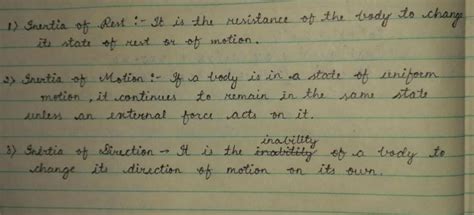 1) Inertia of Rest :- It is the resistance of the body to change
its state of rest or of motion.
2) Inertia of Motion :- If a body is in a state of uniform
motion, it continues to remain in the same state
unless an external force acts on it.
inability
3) Inertia of Direction → It is the inability of a body to
change its direction of motion on its own.